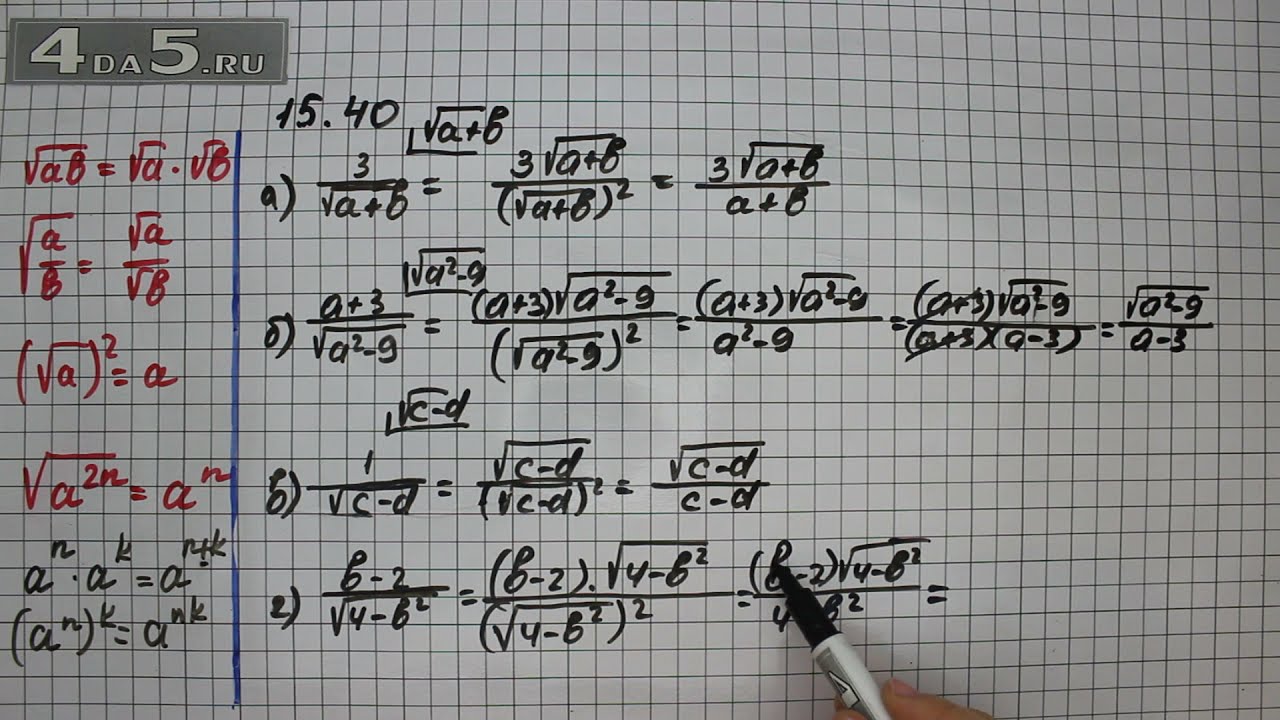 4DA5.RU
15.40
√(ab) = √a · √b
√(a/b) = √a/√b
(√a)² = a
√(a²ⁿ) = aⁿ
aⁿ · aᵏ = aⁿ⁺ᵏ
(aⁿ)ᵏ = aⁿᵏ
√(a+b)
а) 3/√(a+b) = 3√(a+b)/(√(a+b))² = 3√(a+b)/(a+b)
√(a²-9)
б) (a+3)/√(a²-9) = (a+3)√(a²-9)/(√(a²-9))² = (a+3)√(a²-9)/(a²-9) = (a+3)√(a²-9)/((a+3)(a-3)) = √(a²-9)/(a-3)
√(c-d)
б) 1/√(c-d) = √(c-d)/(√(c-d))² = √(c-d)/(c-d)
г) (b-2)/√(4-b²) = (b-2)·√(4-b²)/(√(4-b²))² = (b-2)√(4-b²)/(4-b²) =